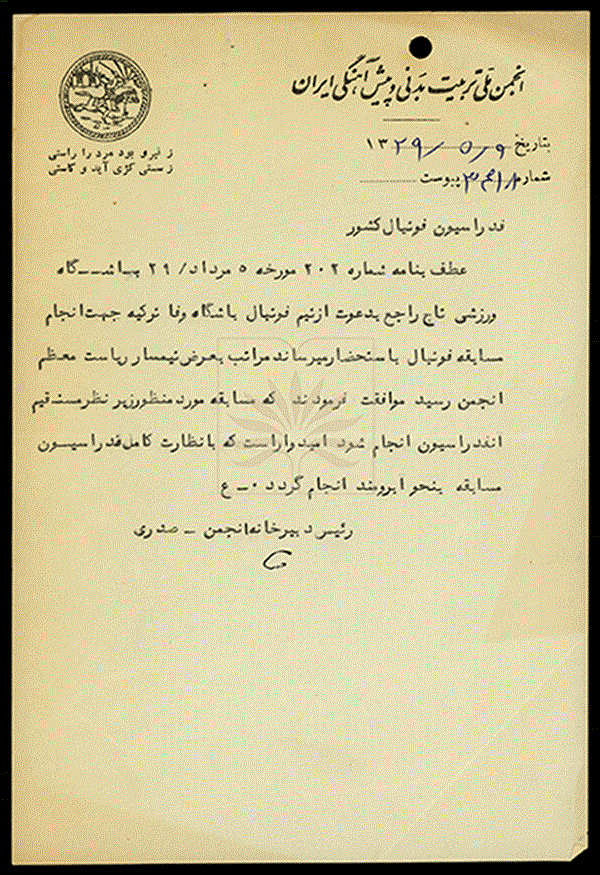 انجمن ملی تربیت بدنی و پیش آهنگی ایران
ز نیرو بود مرد را راستی
ز سستی کژی آید و کاستی
بتاریخ ۱۳۲۹/۵/۹
شماره پیوست
فدراسیون فوتبال کشور
عطف بنامه شماره ۲۰۲ مورخه ۵ مرداد/ ۲۹ باشگاه
ورزشی تاج راجع بدعوت از تیم فوتبال باشگاه وفا ترکیه جهت انجام
مسابقه فوتبال باستحضار میرساند مراتب بعرض تیمسار ریاست معظم
انجمن رسید موافقت فرمودند که مسابقه مورد منظور زیر نظر مستقیم
آنفدراسیون انجام شود امیدوار است که با نظارت کامل فدراسیون
مسابقه بنحو ابرومند انجام گردد ۰ـ ع
رئیس دبیرخانه انجمن ـ صدری